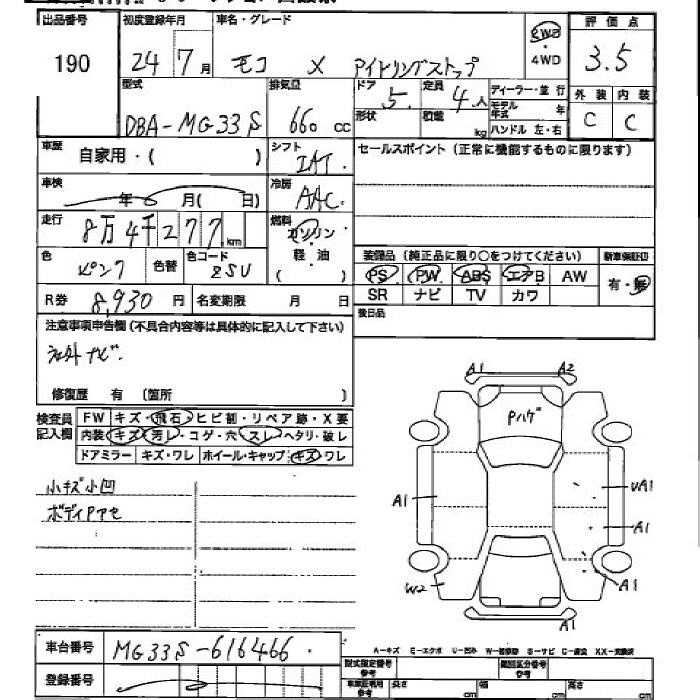 出品番号
190
初度登録年月
24 7月
車名・グレード
モコ X アイドリングストップ
2WD
・
4WD
評価点
3.5
型式
DBA-MG33S
排気量
660 cc
ドア
5
定員
4人
形状
積載
kg
ディーラー・並行
モデル年式 年
ハンドル 左・右
外装
C
内装
C
車歴
自家用・( )
シフト
IAT
セールスポイント(正常に機能するものに限ります)
車検
年 月( 日)
冷房
AAC
走行
8万4千277km
燃料
ガソリン
軽・油
( )
色
ピンク
色替
色コード
ZSU
装備品(純正品に限り○をつけてください)
PS PW ABS エアB AW
SR ナビ TV カワ
新車保証印
有・無
R券 8,930円
名変期限 月 日
後日品
注意事項申告欄(不具合内容等は具体的に記入して下さい)
社外ナビ
修復歴 有 (箇所 )
検査員
記入欄
FW キズ・飛石・ヒビ割・リペア跡・X要
内装 キズ・汚レ・コゲ・穴・スレ・ヘタリ・破レ
ドアミラー キズ・ワレ ホイール・キャップ キズ・ワレ
小キズ小凹
ボディPアセ
A1
A2
Pハゲ
A1
UA1
A1
W2
A1
車台番号
MG33S-616466
登録番号
A-キズ E-エクボ U-凹み W-補修跡 S-サビ C-腐食 XX-交換済
型式指定番号
参考
類別区分番号
参考
車庫証明用
参考
長さ cm
幅 cm
高さ cm